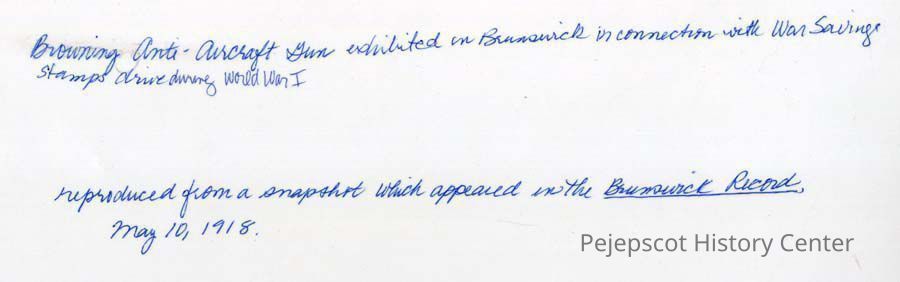 Browning Anti-Aircraft Gun exhibited in Brunswick in connection with War Savings
Stamps drive during World War I
reproduced from a snapshot which appeared in the Brunswick Record,
May 10, 1918.
Pejepscot History Center